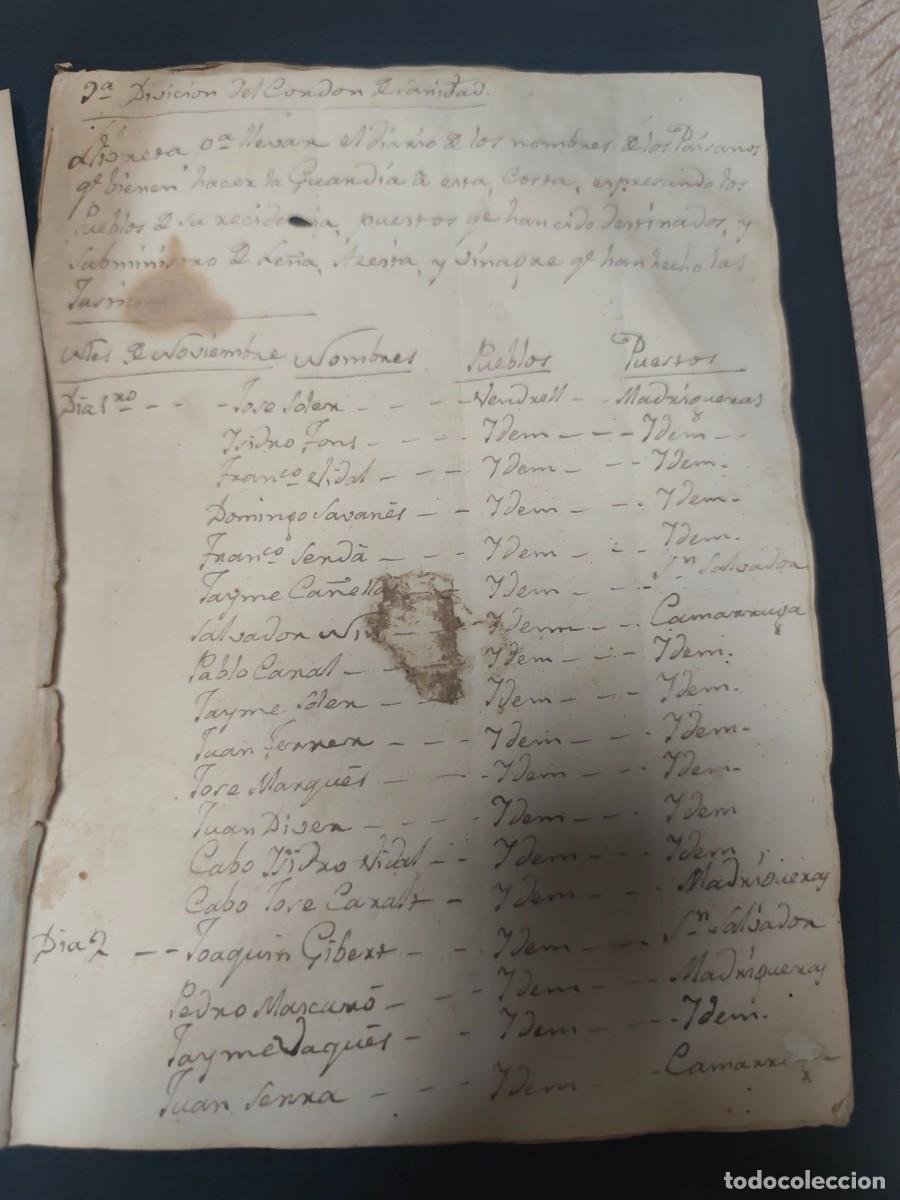 9ª Division del Cordon de Sanidad.
Libreta pª llevar el diário de los nombres de los Paisanos
qe bienen hacer la Guardia â esta Costa, espresando los
Pueblos de su recidencia, puestos qe han cido destinados, y
Subministro de Leña, Azeita, y Vinagre qe han hecho las
Mes de Noviembre Nombres Pueblos Puestos
Dia 1ro - - - Jose Soler - - - - Vendrell - - Madrigueras
Isidro Fons - - - - Idem - - - Idem - -
Franco Vidal - - - - Idem - - - Idem.
Domingo Savanés - - Idem - - - Idem -
Franco Serdá - - - Idem - - - Idem.
Jayme Cañella - - Idem - - - Sn Salvador
Salvador Nin - Idem - - - Camarruga
Pablo Canal - - - Idem - - - Idem.
Jayme Soler - - - Idem - - - Idem.
Juan Ferrer - - - - Idem - - - Idem.
Jose Marqués - - - - Idem - - - Idem -
Juan Diver - - - - Idem - - - Idem
Cabo Isidro Vidal - - Idem - - - Idem
Cabo Jose Canals - Idem - - Madrigueras
Dia 2 - - - Joaquin Gibert - - Idem - - Sn Salvador
Pedro Mascaró - - - Idem - - - Madrigueras
Jayme Vaqués - - Idem - - - Idem.
Juan Serra - - - Idem - - Camarruga
todocoleccion